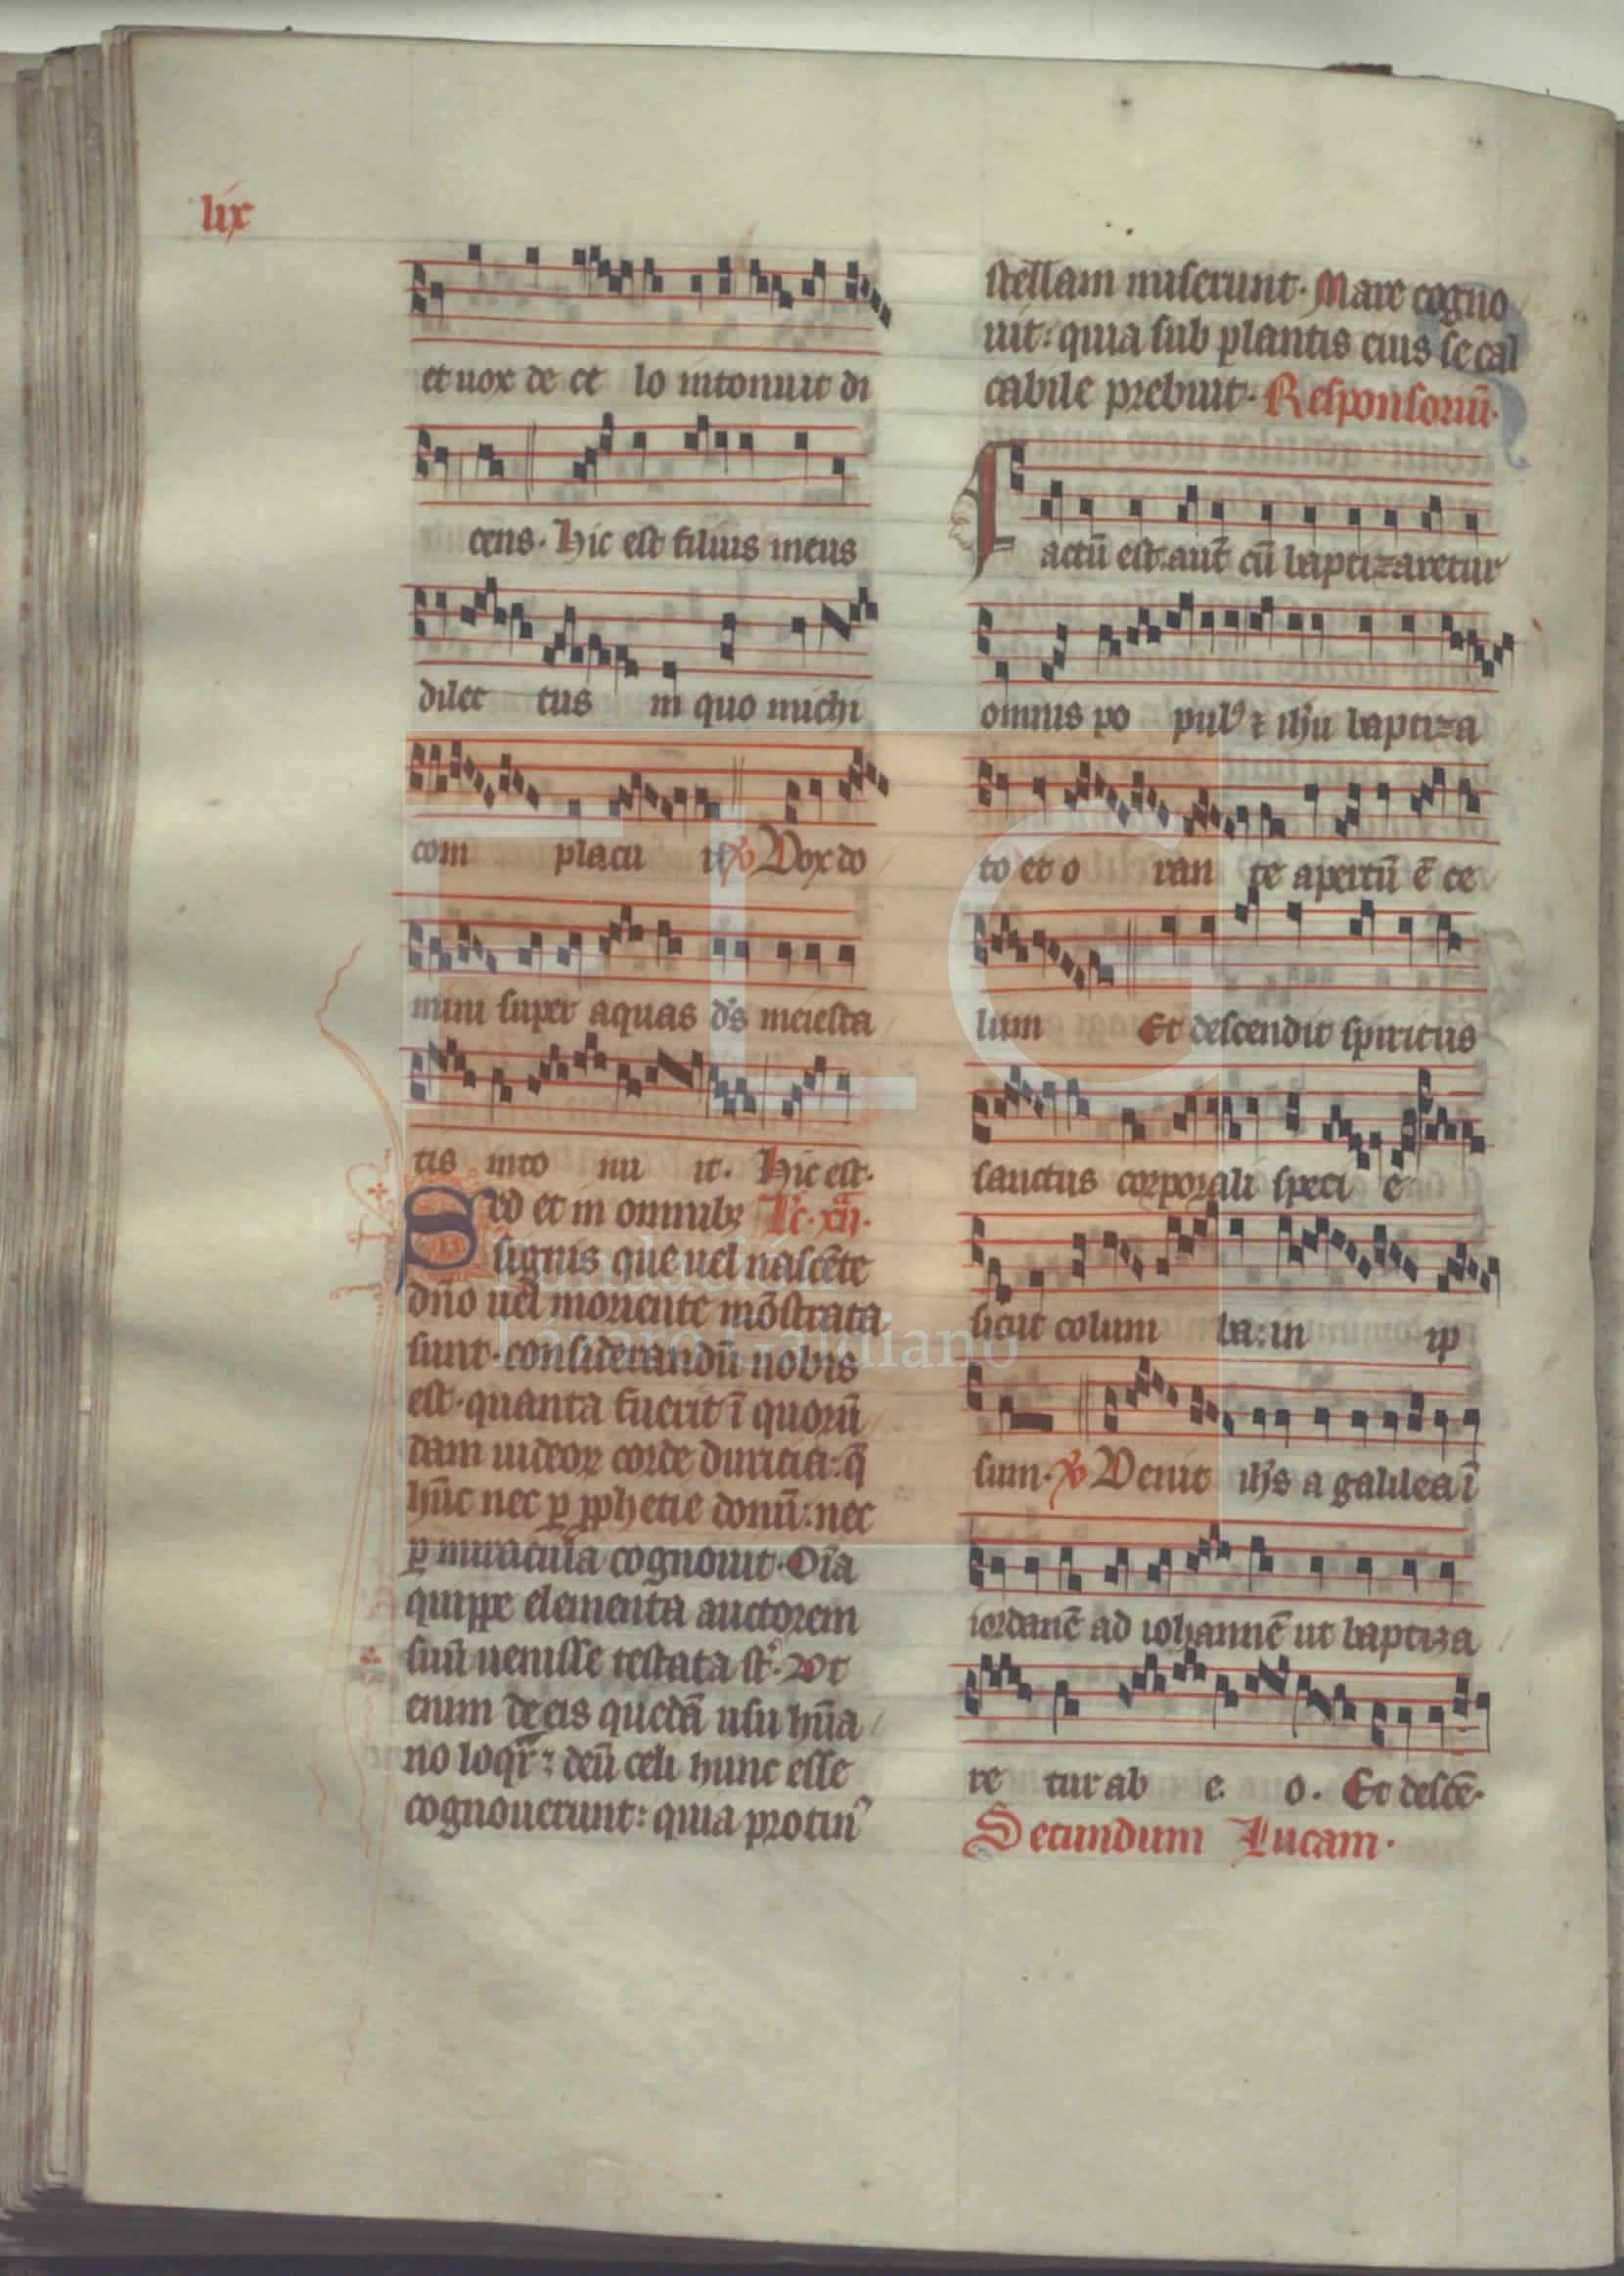 lix
et uox de ce lo intonuit di
cens. Hic est filius meus
dilec tus in quo michi
com placu it ℣ Vox do
mini super aquas d's meiesta
tis into nu it. Hic est.
Sed et in omnibꝫ Lc̄. xii.ª
signis que uel nascēte
dn̄o uel moriente mōstrata
sunt. considerandū nobis
est. quanta fuerit ī quorū
dam iudeoꝝ corde duritia: q̄
hūc nec ꝑ ꝓphetie donū: nec
ꝑ miracula cognouit. Oīa
quippe elementa auctorem
suū uenisse testata st̄. Vt
enim de eis quedā usu hūa
no loqr̄: deū celi hunc esse
cognouerunt: quia protinꝰ
stellam miserunt. Mare cogno
uit: quia sub plantis eius se cal
cabile prebuit. Responsoriū.
Factū est. aut̄ cū baptizaretur
omnis po pulꝰ ⁊ ihū baptiza
to et o ran te apertū ē ce
lum Et descendit spiritus
sanctus corporali speci e
sicut colum ba: in ip
sum. ℣ Venit ihs a galilea ī
iordanē ad iohannē ut baptiza
re tur ab e o. Et descē.
Secundum Lucam.
Fundación
Lázaro Galdiano
FLG